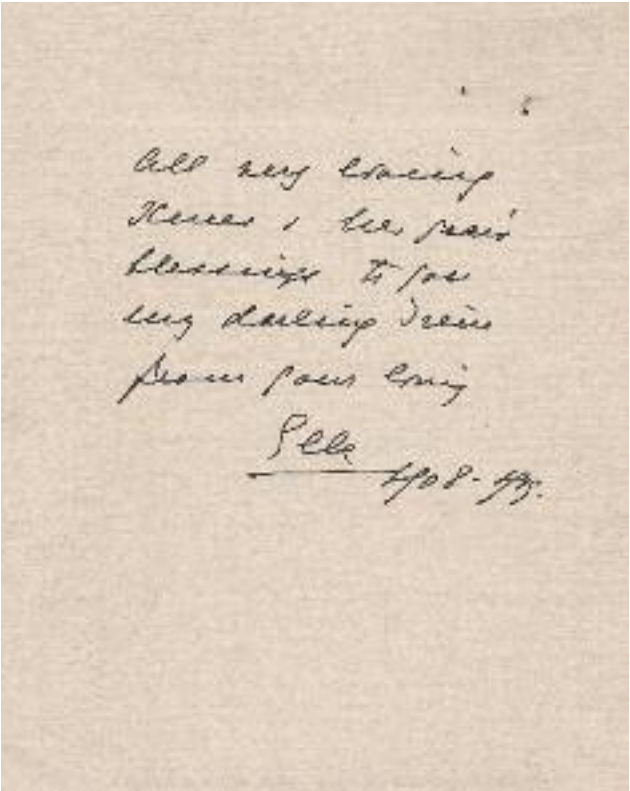 All my loving
Xmas & New Year's
blessings to you
my darling Irene
from your loving
Ella
1908-